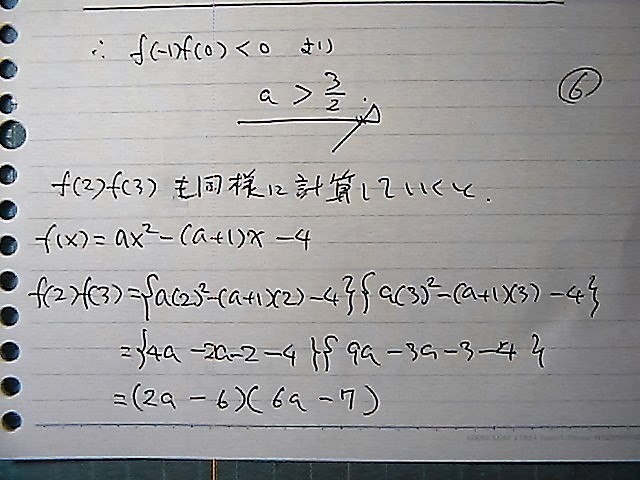 ∴ f(-1)f(0) < 0 より
a > 3/2.
⑥
f(2)f(3) も同様に計算していくと.
f(x) = ax² - (a+1)x - 4
f(2)f(3) = {a(2)² - (a+1)(2) - 4}{a(3)² - (a+1)(3) - 4}
= {4a - 2a - 2 - 4}{9a - 3a - 3 - 4}
= (2a - 6)(6a - 7)